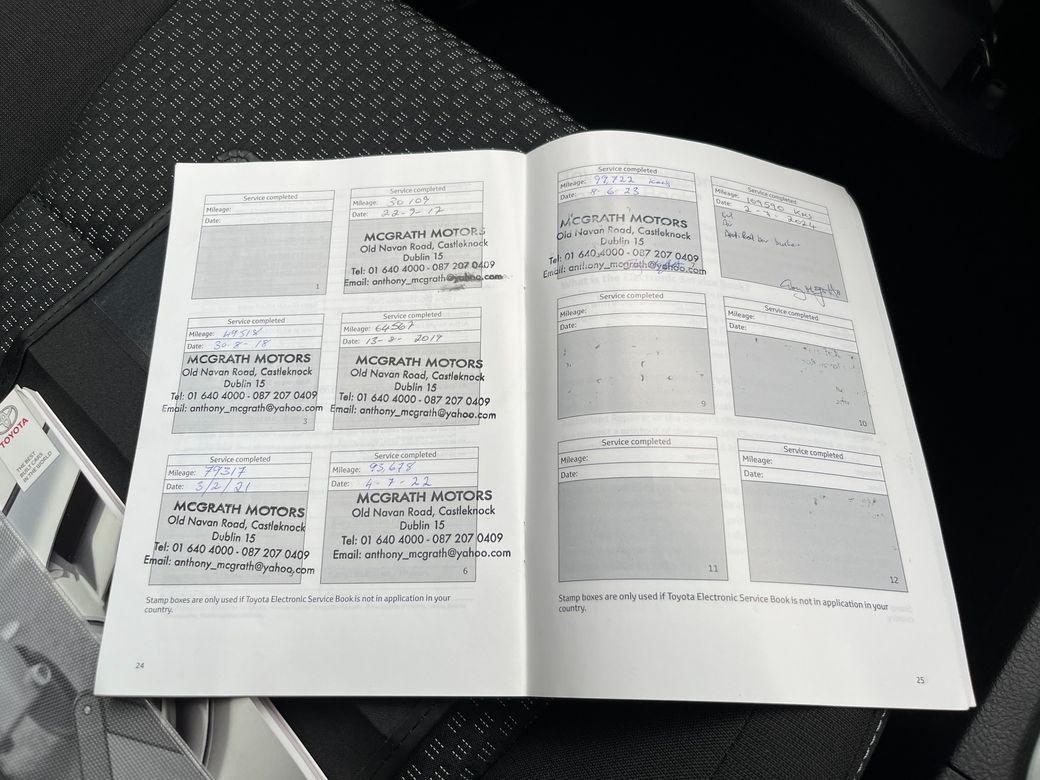 Service completed
Mileage:
Date:
1
Service completed
Mileage: 30109
Date:
MCGRATH MOTORS
Old Navan Road, Castleknock
Dublin 15
Tel: 01 640 4000 - 087 207 0409
Email: anthony_mcgrath@yahoo.com
Service completed
Mileage: 49518
Date: 30-8-18
MCGRATH MOTORS
Old Navan Road, Castleknock
Dublin 15
Tel: 01 640 4000 - 087 207 0409
Email: anthony_mcgrath@yahoo.com
3
Service completed
Mileage: 64567
Date: 13-8-2019
MCGRATH MOTORS
Old Navan Road, Castleknock
Dublin 15
Tel: 01 640 4000 - 087 207 0409
Email: anthony_mcgrath@yahoo.com
Service completed
Mileage: 79317
Date: 3/2/21
MCGRATH MOTORS
Old Navan Road, Castleknock
Dublin 15
Tel: 01 640 4000 - 087 207 0409
Email: anthony_mcgrath@yahoo.com
Service completed
Mileage: 93,678
Date: 4-7-22
MCGRATH MOTORS
Old Navan Road, Castleknock
Dublin 15
Tel: 01 640 4000 - 087 207 0409
Email: anthony_mcgrath@yahoo.com
6
Stamp boxes are only used if Toyota Electronic Service Book is not in application in your
country.
24
Service completed
Mileage: 99,722
Date: 8-6-23
MCGRATH MOTORS
Old Navan Road, Castleknock
Dublin 15
Tel: 01 640 4000 - 087 207 0409
Email: anthony_mcgrath@yahoo.com
Service completed
Mileage: 109590 KMS
Date: 2-7-2024
Service completed
Mileage:
Date:
9
Service completed
Mileage:
Date:
10
Service completed
Mileage:
Date:
11
Service completed
Mileage:
Date:
12
Stamp boxes are only used if Toyota Electronic Service Book is not in application in your
country.
25
TOYOTA
THE BEST
BUILT CARS
IN THE WORLD